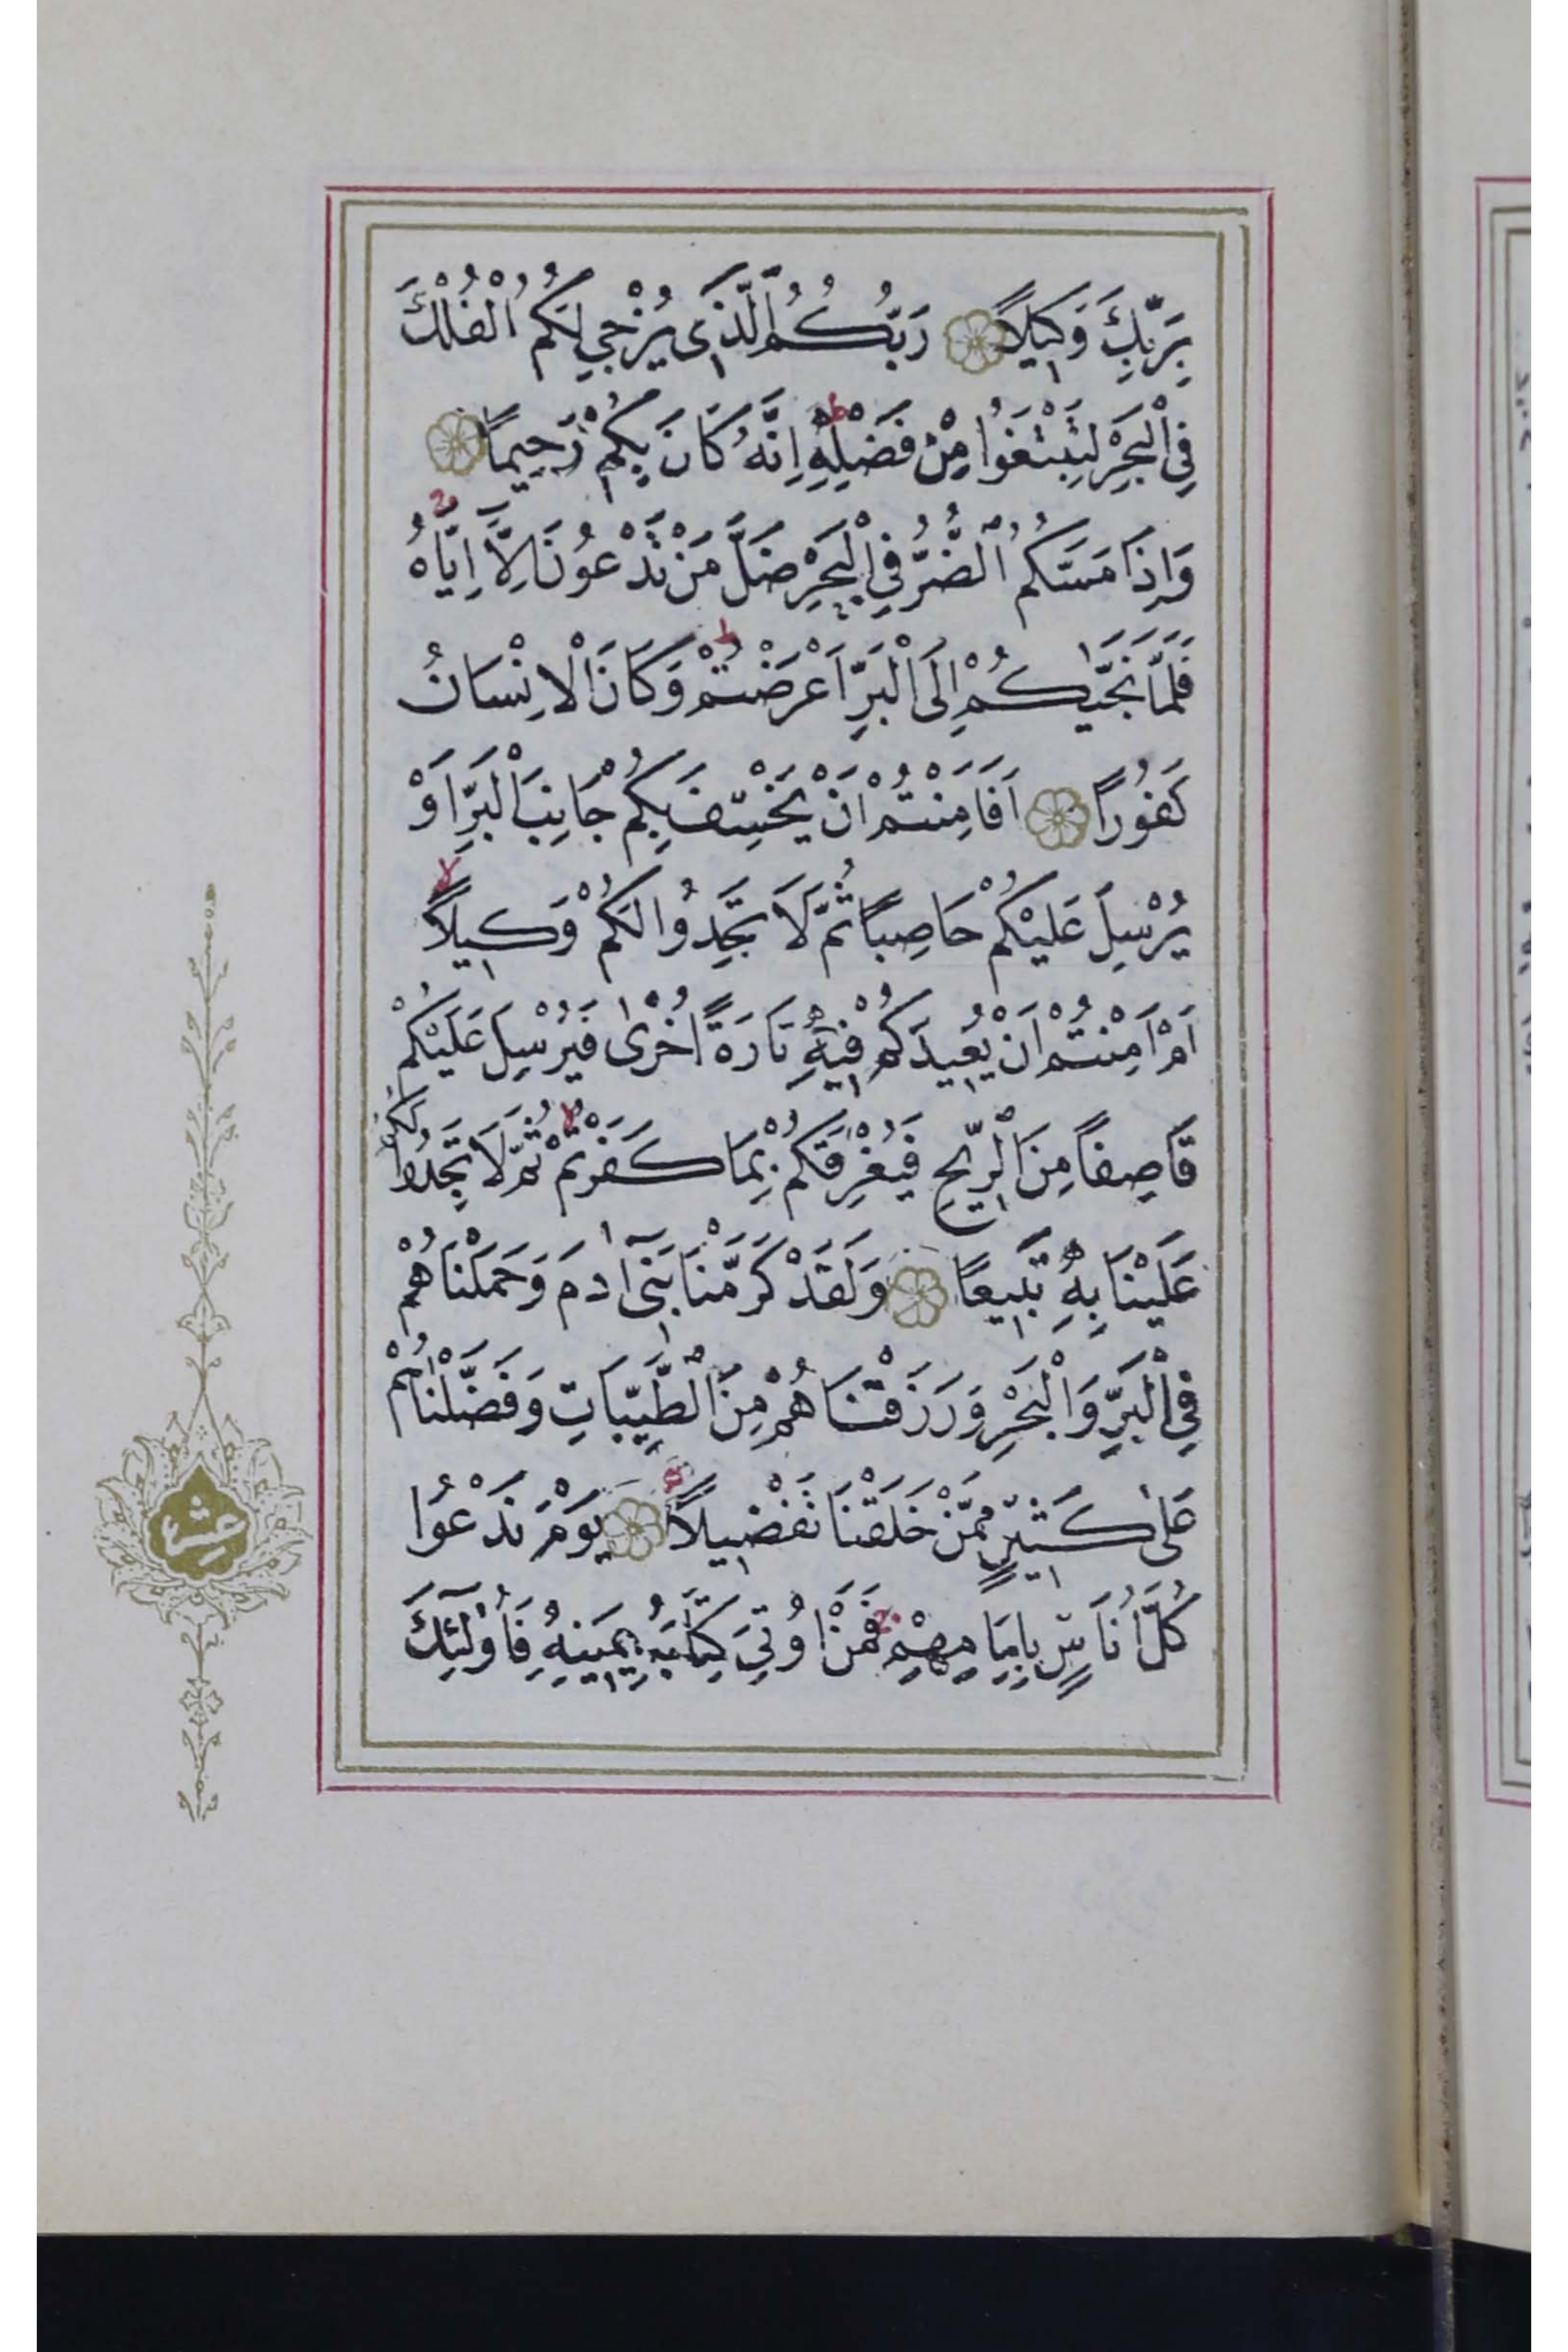 بِرَبِّكَ وَكِيلًا رَبُّكُمُ الَّذِي يُزْجِي لَكُمُ الْفُلْكَ
فِي الْبَحْرِ لِتَبْتَغُوا مِنْ فَضْلِهِ ط اِنَّهُ كَانَ بِكُمْ رَحِيمًا
وَاِذَا مَسَّكُمُ الضُّرُّ فِي الْبَحْرِ ضَلَّ مَنْ تَدْعُونَ اِلَّا اِيَّاهُ ج
فَلَمَّا نَجّٰيكُمْ اِلَى الْبَرِّ اَعْرَضْتُمْ ط وَكَانَ الْاِنْسَانُ
كَفُورًا اَفَاَمِنْتُمْ اَنْ يَخْسِفَ بِكُمْ جَانِبَ الْبَرِّ اَوْ
يُرْسِلَ عَلَيْكُمْ حَاصِبًا ثُمَّ لَا تَجِدُوا لَكُمْ وَكِيلًا لا
اَمْ اَمِنْتُمْ اَنْ يُعِيدَكُمْ فِيهِ تَارَةً اُخْرٰى فَيُرْسِلَ عَلَيْكُمْ
قَاصِفًا مِنَ الرِّيحِ فَيُغْرِقَكُمْ بِمَا كَفَرْتُمْ لا ثُمَّ لَا تَجِدُوا لَكُمْ
عَلَيْنَا بِهِ تَبِيعًا وَلَقَدْ كَرَّمْنَا بَنِٓي اٰدَمَ وَحَمَلْنَاهُمْ
فِي الْبَرِّ وَالْبَحْرِ وَرَزَقْنَاهُمْ مِنَ الطَّيِّبَاتِ وَفَضَّلْنَاهُمْ
عَلٰى كَثِيرٍ مِمَّنْ خَلَقْنَا تَفْضِيلًا يَوْمَ نَدْعُوا
عشر
كُلَّ اُنَاسٍ بِاِمَامِهِمْ ج فَمَنْ اُوتِيَ كِتَابَهُ بِيَمِينِهِ فَاُولٰٓئِكَ